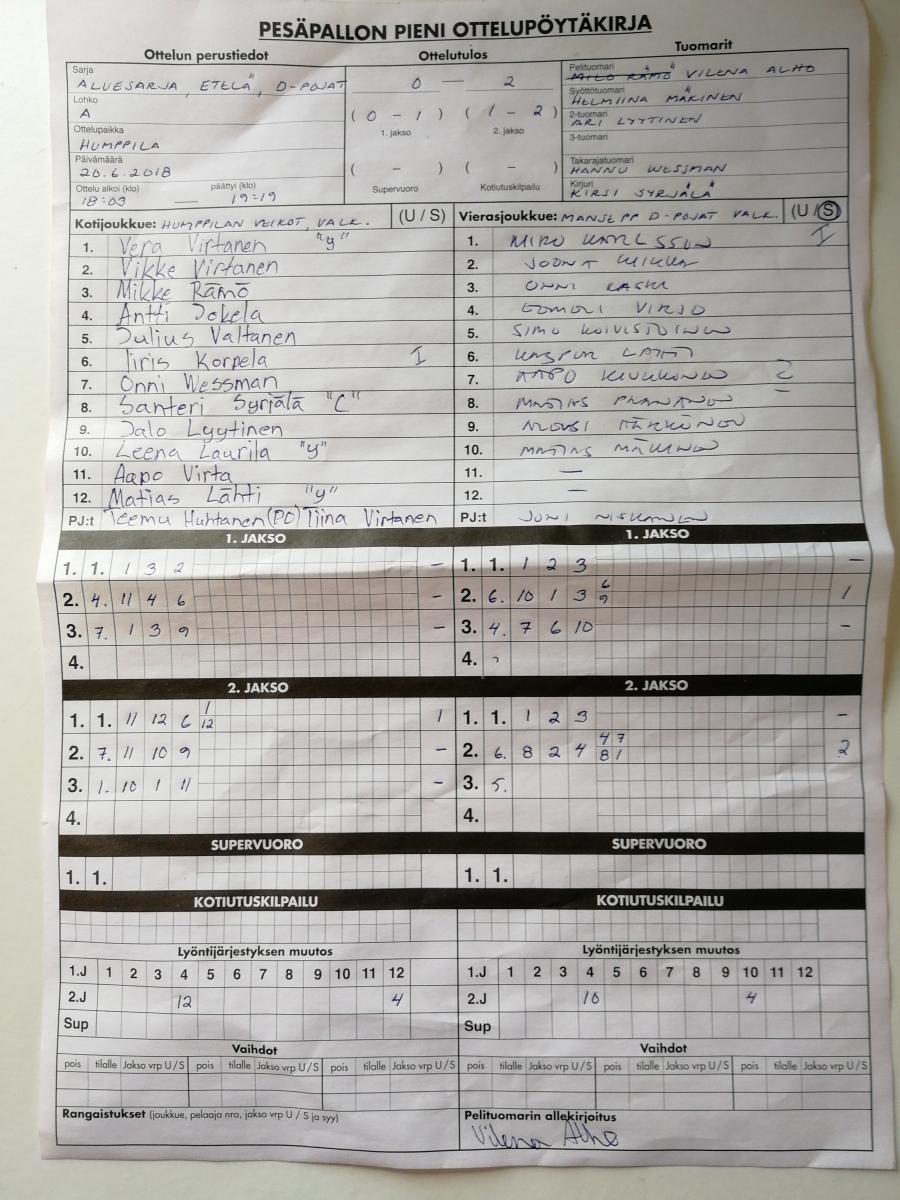 PESÄPALLON PIENI OTTELUPÖYTÄKIRJA
Ottelun perustiedot
Sarja
ALUESARJA, ETELÄ, D-POJAT
Lohko
A
Ottelupaikka
HUMPPILA
Päivämäärä
20.6.2018
Ottelu alkoi (klo) päättyi (klo)
18:03 — 19:19
Ottelutulos
0 — 2
(0 - 1) (1 - 2)
1. jakso 2. jakso
( - ) ( - )
Supervuoro Kotiutuskilpailu
Tuomarit
Pelituomari
MILO RÄMÖ VILENA ALHO
Syöttötuomari
HELMIINA MÄKINEN
2-tuomari
ARI LYYTINEN
3-tuomari
Takarajatuomari
HANNU WESSMAN
Kirjuri
KIRSI SYRJÄLÄ
Kotijoukkue: HUMPPILAN VEIKOT, VALK. (U / S)
1. Vera Virtanen "y"
2. Vikke Virtanen
3. Mikke Rämö
4. Antti Jokela
5. Julius Valtanen
6. Iiris Korpela I
7. Onni Wessman
8. Santeri Syrjälä "C"
9. Jalo Lyytinen
10. Leena Laurila "y"
11. Aapo Virta
12. Matias Lähti "y"
PJ:t Teemu Huhtanen (PC) Tiina Virtanen
Vierasjoukkue: MANSE PP D-POJAT VALK. (U / S)
1. MIRO KARLSSON I
2. JOONA
3. ONNI
4.
5. SIMO KOIVISTOINEN
6. LAHTI
7. AAPO
8. MATIAS
9.
10. MATIAS MÄKINEN
11. —
12. —
PJ:t JONI NISKANEN
1. JAKSO
1. 1. 1 3 2 –
2. 4. 11 4 6 –
3. 7. 1 3 9 –
4.
1. JAKSO
1. 1. 1 2 3 –
2. 6. 10 1 3 6 9 1
3. 4. 7 6 10 –
4.
2. JAKSO
1. 1. 11 12 6 1 12 1
2. 7. 11 10 9 –
3. 1. 10 1 11 –
4.
2. JAKSO
1. 1. 1 2 3 –
2. 6. 8 2 4 4 7 8 1 2
3. 5.
4.
SUPERVUORO
1. 1.
SUPERVUORO
1. 1.
KOTIUTUSKILPAILU
KOTIUTUSKILPAILU
Lyöntijärjestyksen muutos
1.J 1 2 3 4 5 6 7 8 9 10 11 12
2.J 12 4
Sup
Lyöntijärjestyksen muutos
1.J 1 2 3 4 5 6 7 8 9 10 11 12
2.J 10 4
Sup
Vaihdot
pois tilalle Jakso vrp U / S pois tilalle Jakso vrp U / S pois tilalle Jakso vrp U / S
Vaihdot
pois tilalle Jakso vrp U / S pois tilalle Jakso vrp U / S pois tilalle Jakso vrp U / S
Rangaistukset (joukkue, pelaaja nro, jakso vrp U / S ja syy)
Pelituomarin allekirjoitus
Vilena Alho